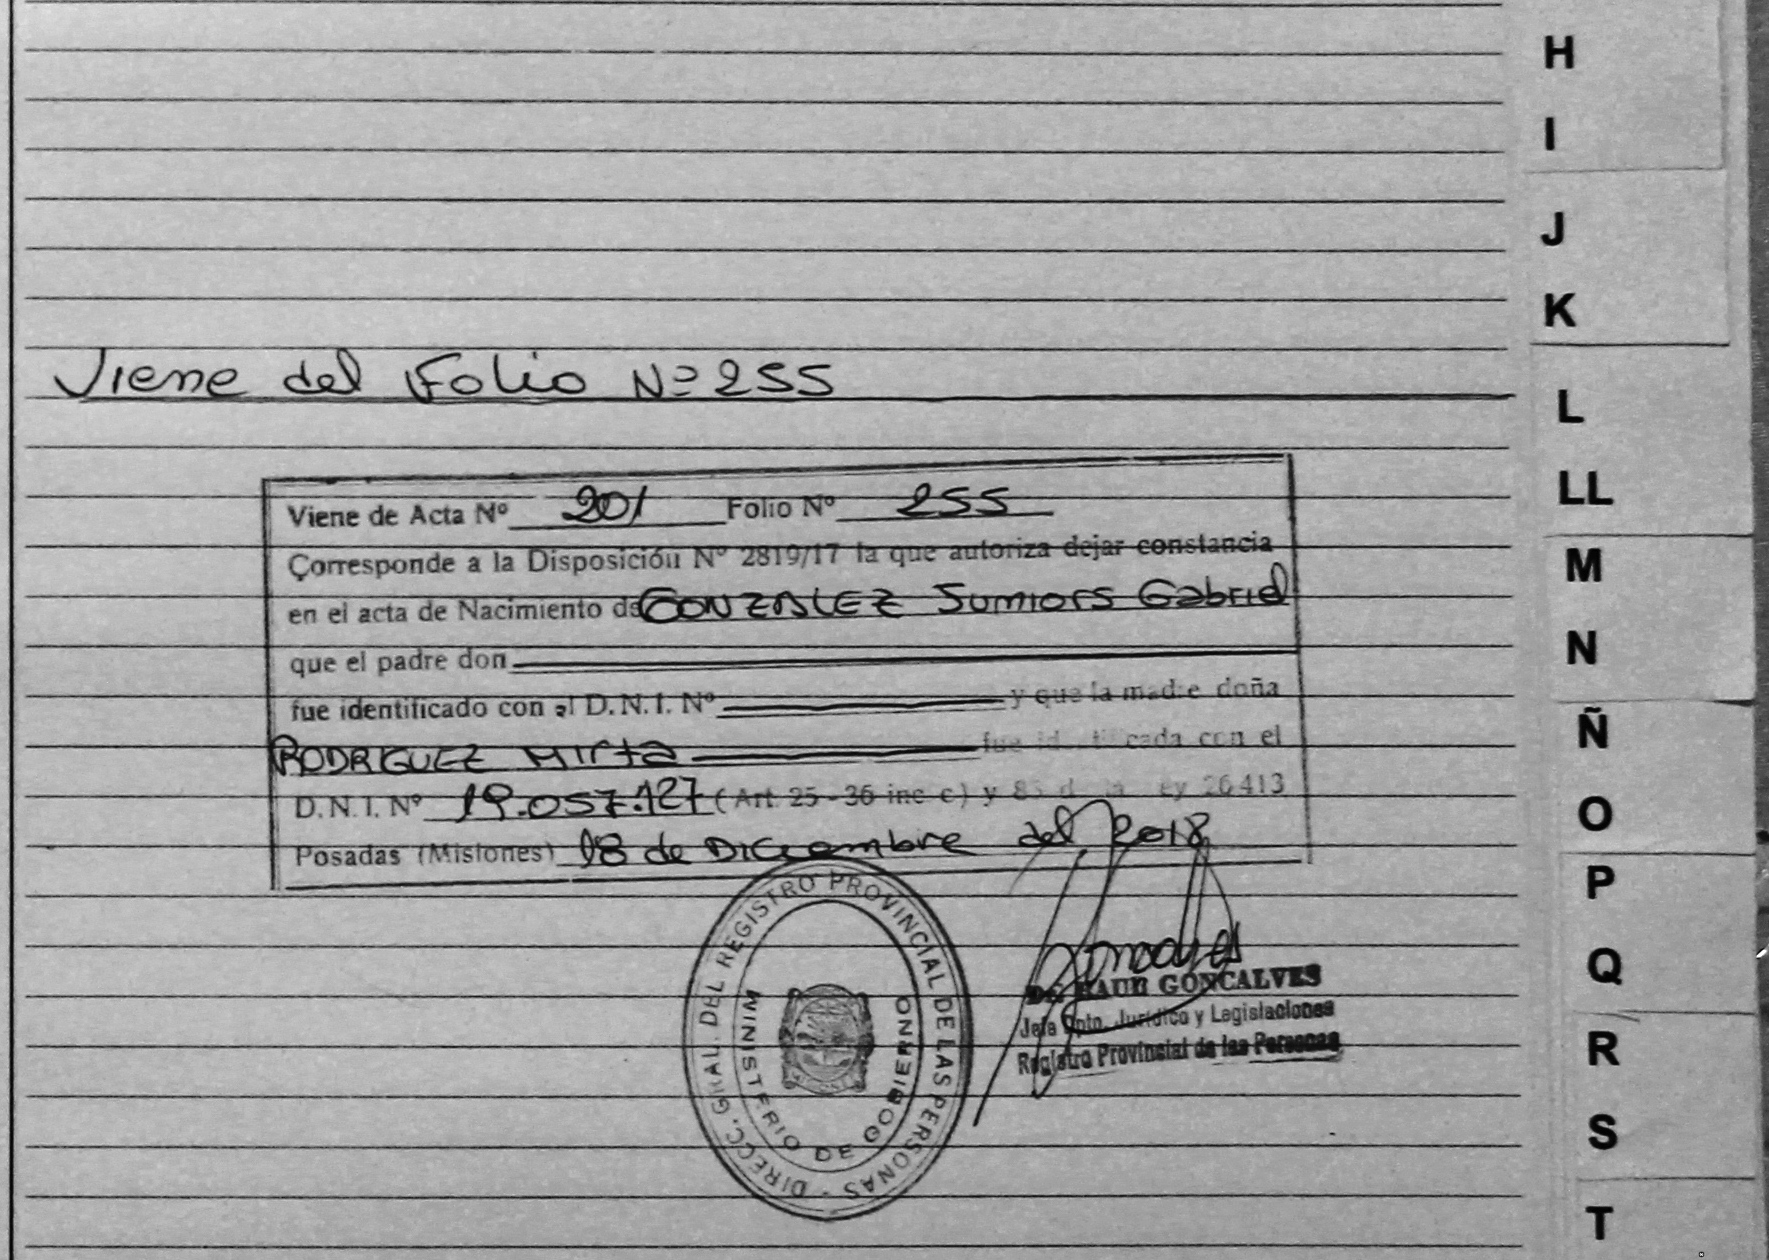 Viene del Folio Nº 255
Viene de Acta Nº 201 Folio Nº 255
Corresponde a la Disposición Nº 2819/17 la que autoriza dejar constancia
en el acta de Nacimiento de GONZALEZ Juniors Gabriel
que el padre don
fue identificado con el D.N.I. Nº y que la madre doña
RODRIGUEZ Mirta fue identificada con el
D.N.I. Nº 19.057.127 (Art. 25 - 36 inc c) y 85 de la Ley 26413
Posadas (Misiones) 18 de Diciembre del 2018
DIRECC. GRAL. DEL REGISTRO PROVINCIAL DE LAS PERSONAS -
MINISTERIO DE GOBIERNO
Dr. RAUL GONCALVES
Jefe Dpto. Jurídico y Legislaciones
Registro Provincial de las Personas
H
I
J
K
L
LL
M
N
Ñ
O
P
Q
R
S
T